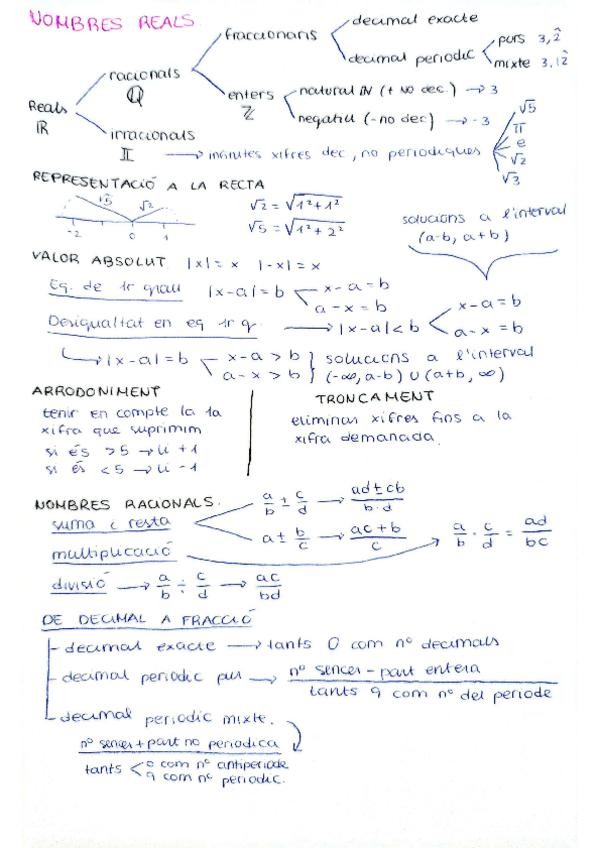 NOMBRES REALS
Reals
ℝ
racionals
ℚ
fraccionaris
decimal exacte
decimal periodic
purs 3,2̂
mixte 3,12̂
enters
ℤ
natural ℕ (+ no dec.) → 3
negatiu (- no dec) → -3
irracionals
𝕀 → infinites xifres dec, no periodiques
√5
π
e
√2
√3
REPRESENTACIÓ A LA RECTA
√5 √2
-2 0 1
√2 = √1²+1²
√5 = √1²+2²
solucions a l'interval
(a-b, a+b)
VALOR ABSOLUT |x| = x |-x| = x
Eq. de 1r grau |x-a| = b
x-a = b
a-x = b
Desigualtat en eq 1r g. → |x-a| < b
x-a = b
a-x = b
→ |x-a| = b
x-a > b
a-x > b
solucions a l'interval
(-∞, a-b) ∪ (a+b, ∞)
ARRODONIMENT
tenir en compte la 1a
xifra que suprimim
si és >5 → u +1
si és <5 → u -1
TRONCAMENT
eliminar xifres fins a la
xifra demanada.
NOMBRES RACIONALS.
suma i resta
a/b ± c/d → ad±cb/b·d
a ± b/c → ac+b/c
multiplicació → a/b · c/d = ad/bc
divisió → a/b ÷ c/d → ac/bd
DE DECIMAL A FRACCIÓ
decimal exacte → tants 0 com nº decimals
decimal periodic pur → nº sencer - part entera
tants 9 com nº del periode
decimal periodic mixte.
nº sencer + part no periodica
tants
0 com nº antiperiode
9 com nº periodic.